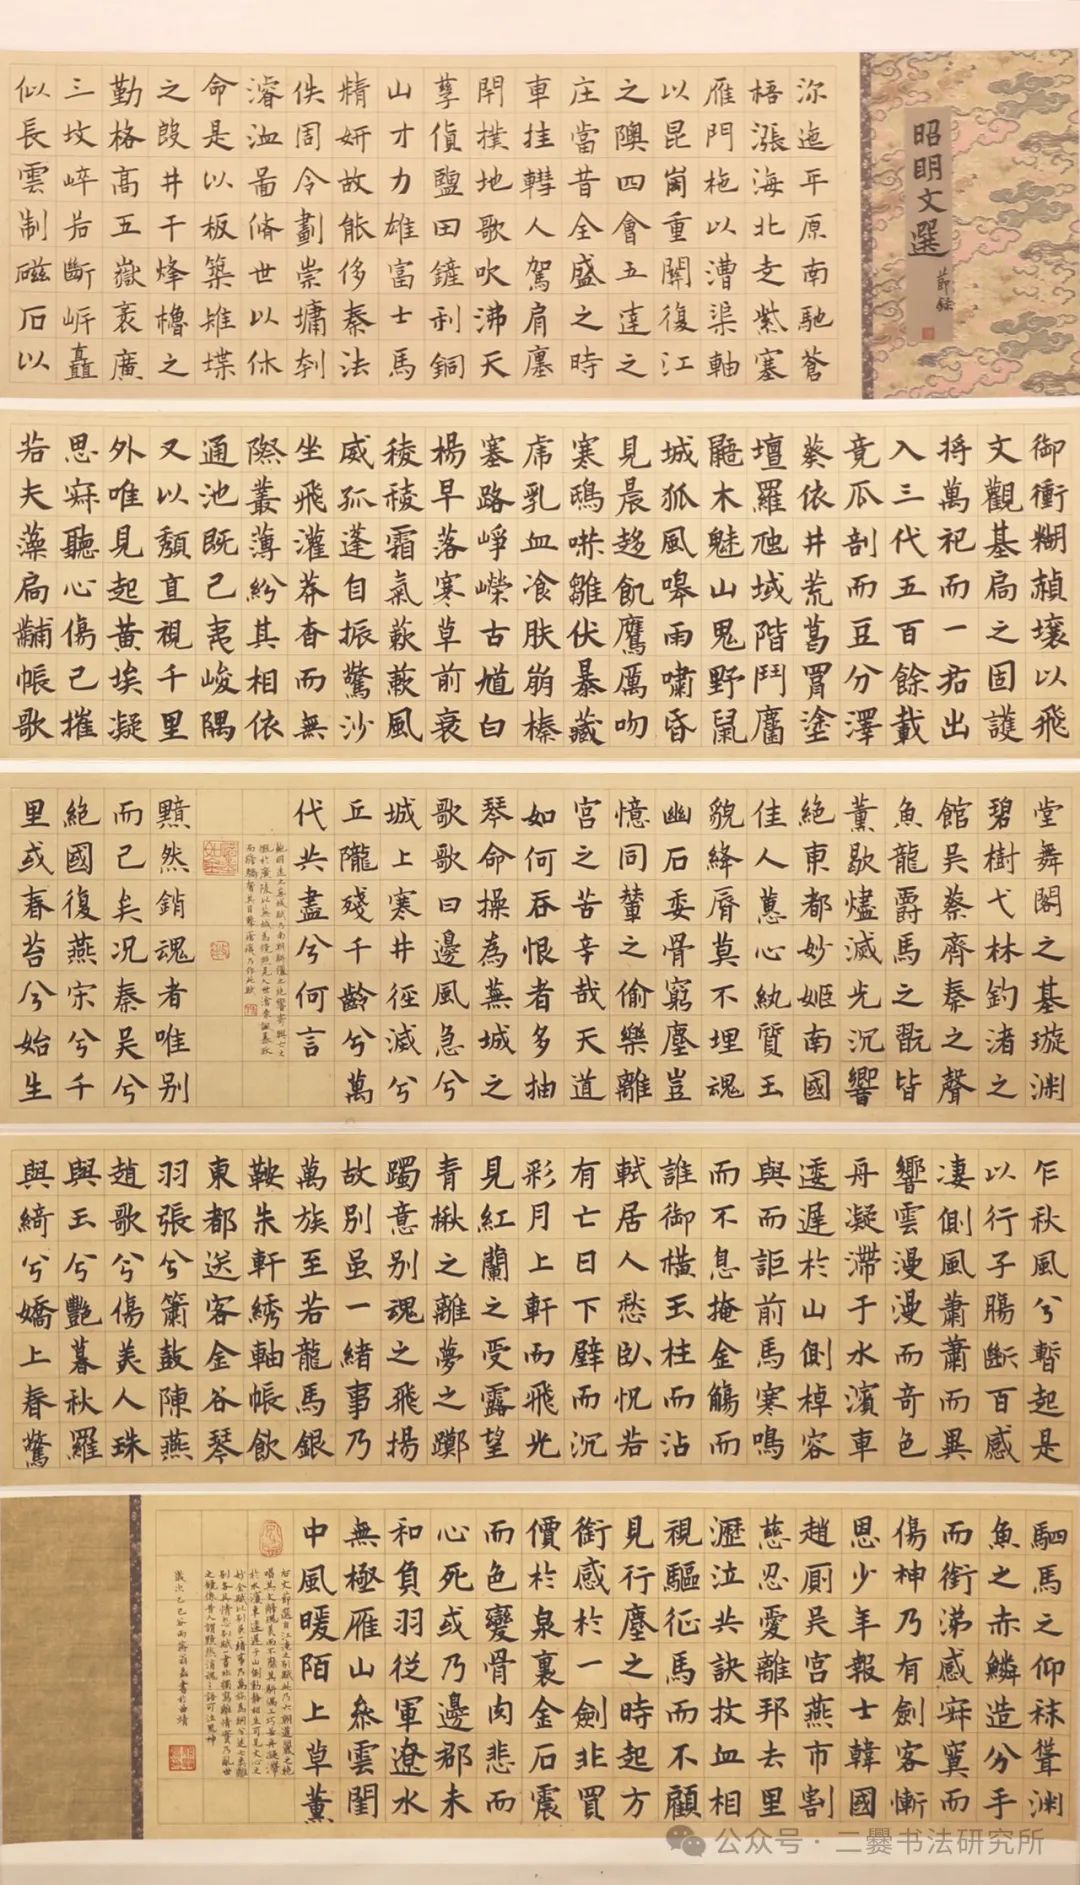 昭明文選
節錄
沵迤平原南馳蒼
梧漲海北走紫塞
雁門柂以漕渠軸
以昆崗重關復江
之隩四會五達之
庄當昔全盛之時
車挂轊人駕肩廛
閈撲地歌吹沸天
孳貨鹽田鏟利銅
山才力雄富士馬
精妍故能侈秦法
佚周令劃崇墉刳
濬洫啚脩世以休
命是以板築雉堞
之殷井干烽櫓之
勤格高五嶽袤廣
三墳崒若斷岸矗
似長雲制磁石以
御衝糊赬壤以飛
文觀基扃之固護
將萬祀而一君出
入三代五百餘載
竟瓜剖而豆分澤
葵依井荒葛罥塗
壇羅虺蜮階鬥麏
鼯木魅山鬼野鼠
城狐風嗥雨嘯昏
見晨趍飢鷹厲吻
寒鴟嚇雛伏暴藏
虎乳血飡肤崩榛
塞路崢嶸古馗白
楊早落寒草前衰
稜稜霜氣蔌蔌風
威孤蓬自振驚沙
坐飛灌莽杳而無
際叢薄紛其相依
通池既已夷峻隅
又以頹直視千里
外唯見起黃埃凝
思寂聽心傷已摧
若夫藻扃黼帳歌
堂舞閣之基璇渊
碧樹弋林釣渚之
館吳蔡齊秦之聲
魚龍爵馬之翫皆
薰歇燼滅光沉響
絕東都妙姬南國
佳人蕙心紈質玉
貌絳脣莫不埋魂
幽石委骨窮塵豈
憶同輦之偷樂離
宮之苦辛哉天道
如何吞恨者多抽
琴命操為蕪城之
歌歌曰邊風急兮
城上寒井徑滅兮
丘隴殘千齡兮萬
代共盡兮何言
黯然銷魂者唯別
而已矣况秦吳兮
絕國復燕宋兮千
里或春苔兮始生
乍秋風兮暫起是
以行子腸斷百感
凄惻風蕭蕭而異
響雲漫漫而奇色
舟凝滯于水濱車
逶遲於山側棹容
與而詎前馬寒鳴
而不息掩金觴而
誰御橫玉柱而沾
軾居人愁卧怳若
有亡日下壁而沉
彩月上軒而飛光
見紅蘭之受露望
青楸之離夢之躑
躅意别魂之飛揚
故别虽一緒事乃
萬族至若龍馬銀
鞍朱軒綉軸帳飲
東都送客金谷琴
羽張兮簫鼓陳燕
趙歌兮傷美人珠
與玉兮艷暮秋羅
與綺兮嬌上春驚
駟馬之仰秣聳渊
魚之赤鱗造分手
而銜涕感寂寞而
傷神乃有劍客慚
恩少年報士韓國
趙厠吳宮燕市割
慈忍愛離邦去里
瀝泣共訣抆血相
視驅征馬而不顧
見行塵之時起方
銜感於一劍非買
價於泉裏金石震
而色變骨肉悲而
心死或乃邊郡未
和負羽從軍遼水
無極雁山參雲閨
中風暖陌上草薰
公众号·二爨书法研究所